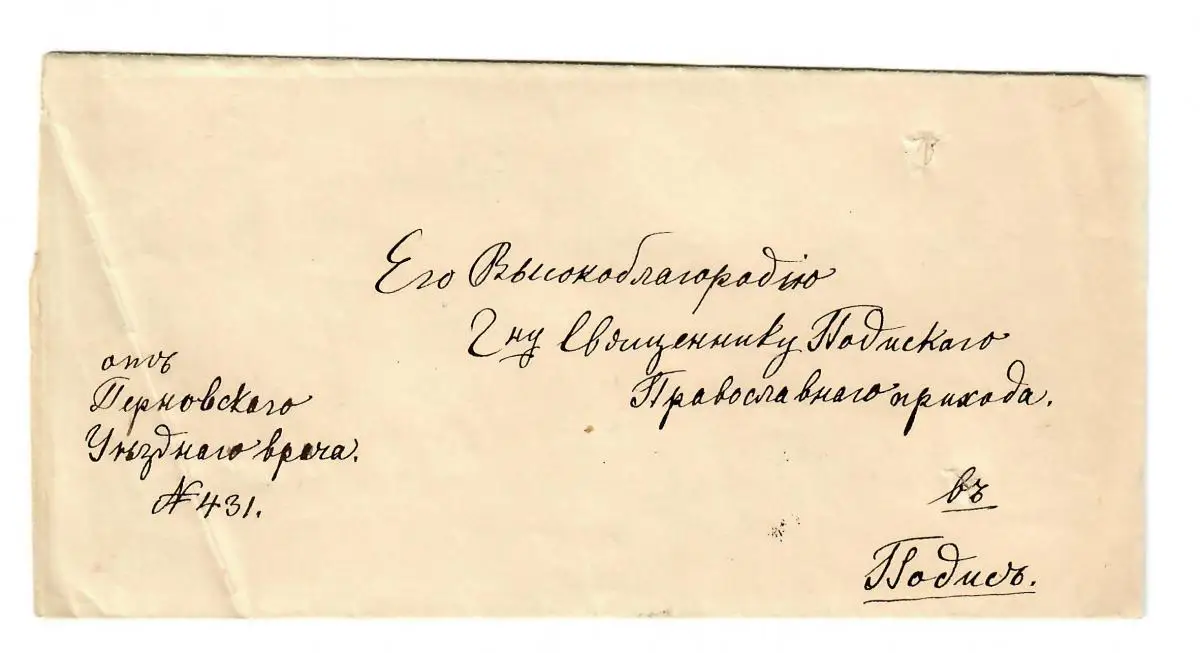 Его Высокоблагородію
Гну Священнику Подискаго
Православнаго прихода.
въ
Подисъ.
отъ
Перновскаго
Уѣзднаго врача.
№ 431.